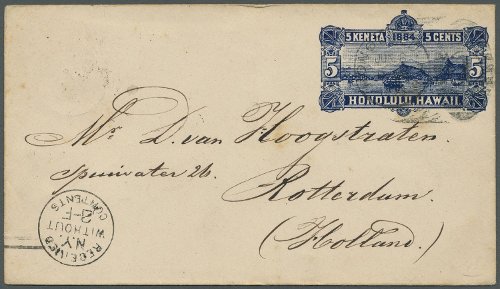 5 KENETA 1884 5 CENTS
5 5
HONOLULU, HAWAII.
Mr. D. van Hoogstraten
Rotterdam.
(Holland.)
RECEIVED
N.Y.
WITHOUT
CONTENTS